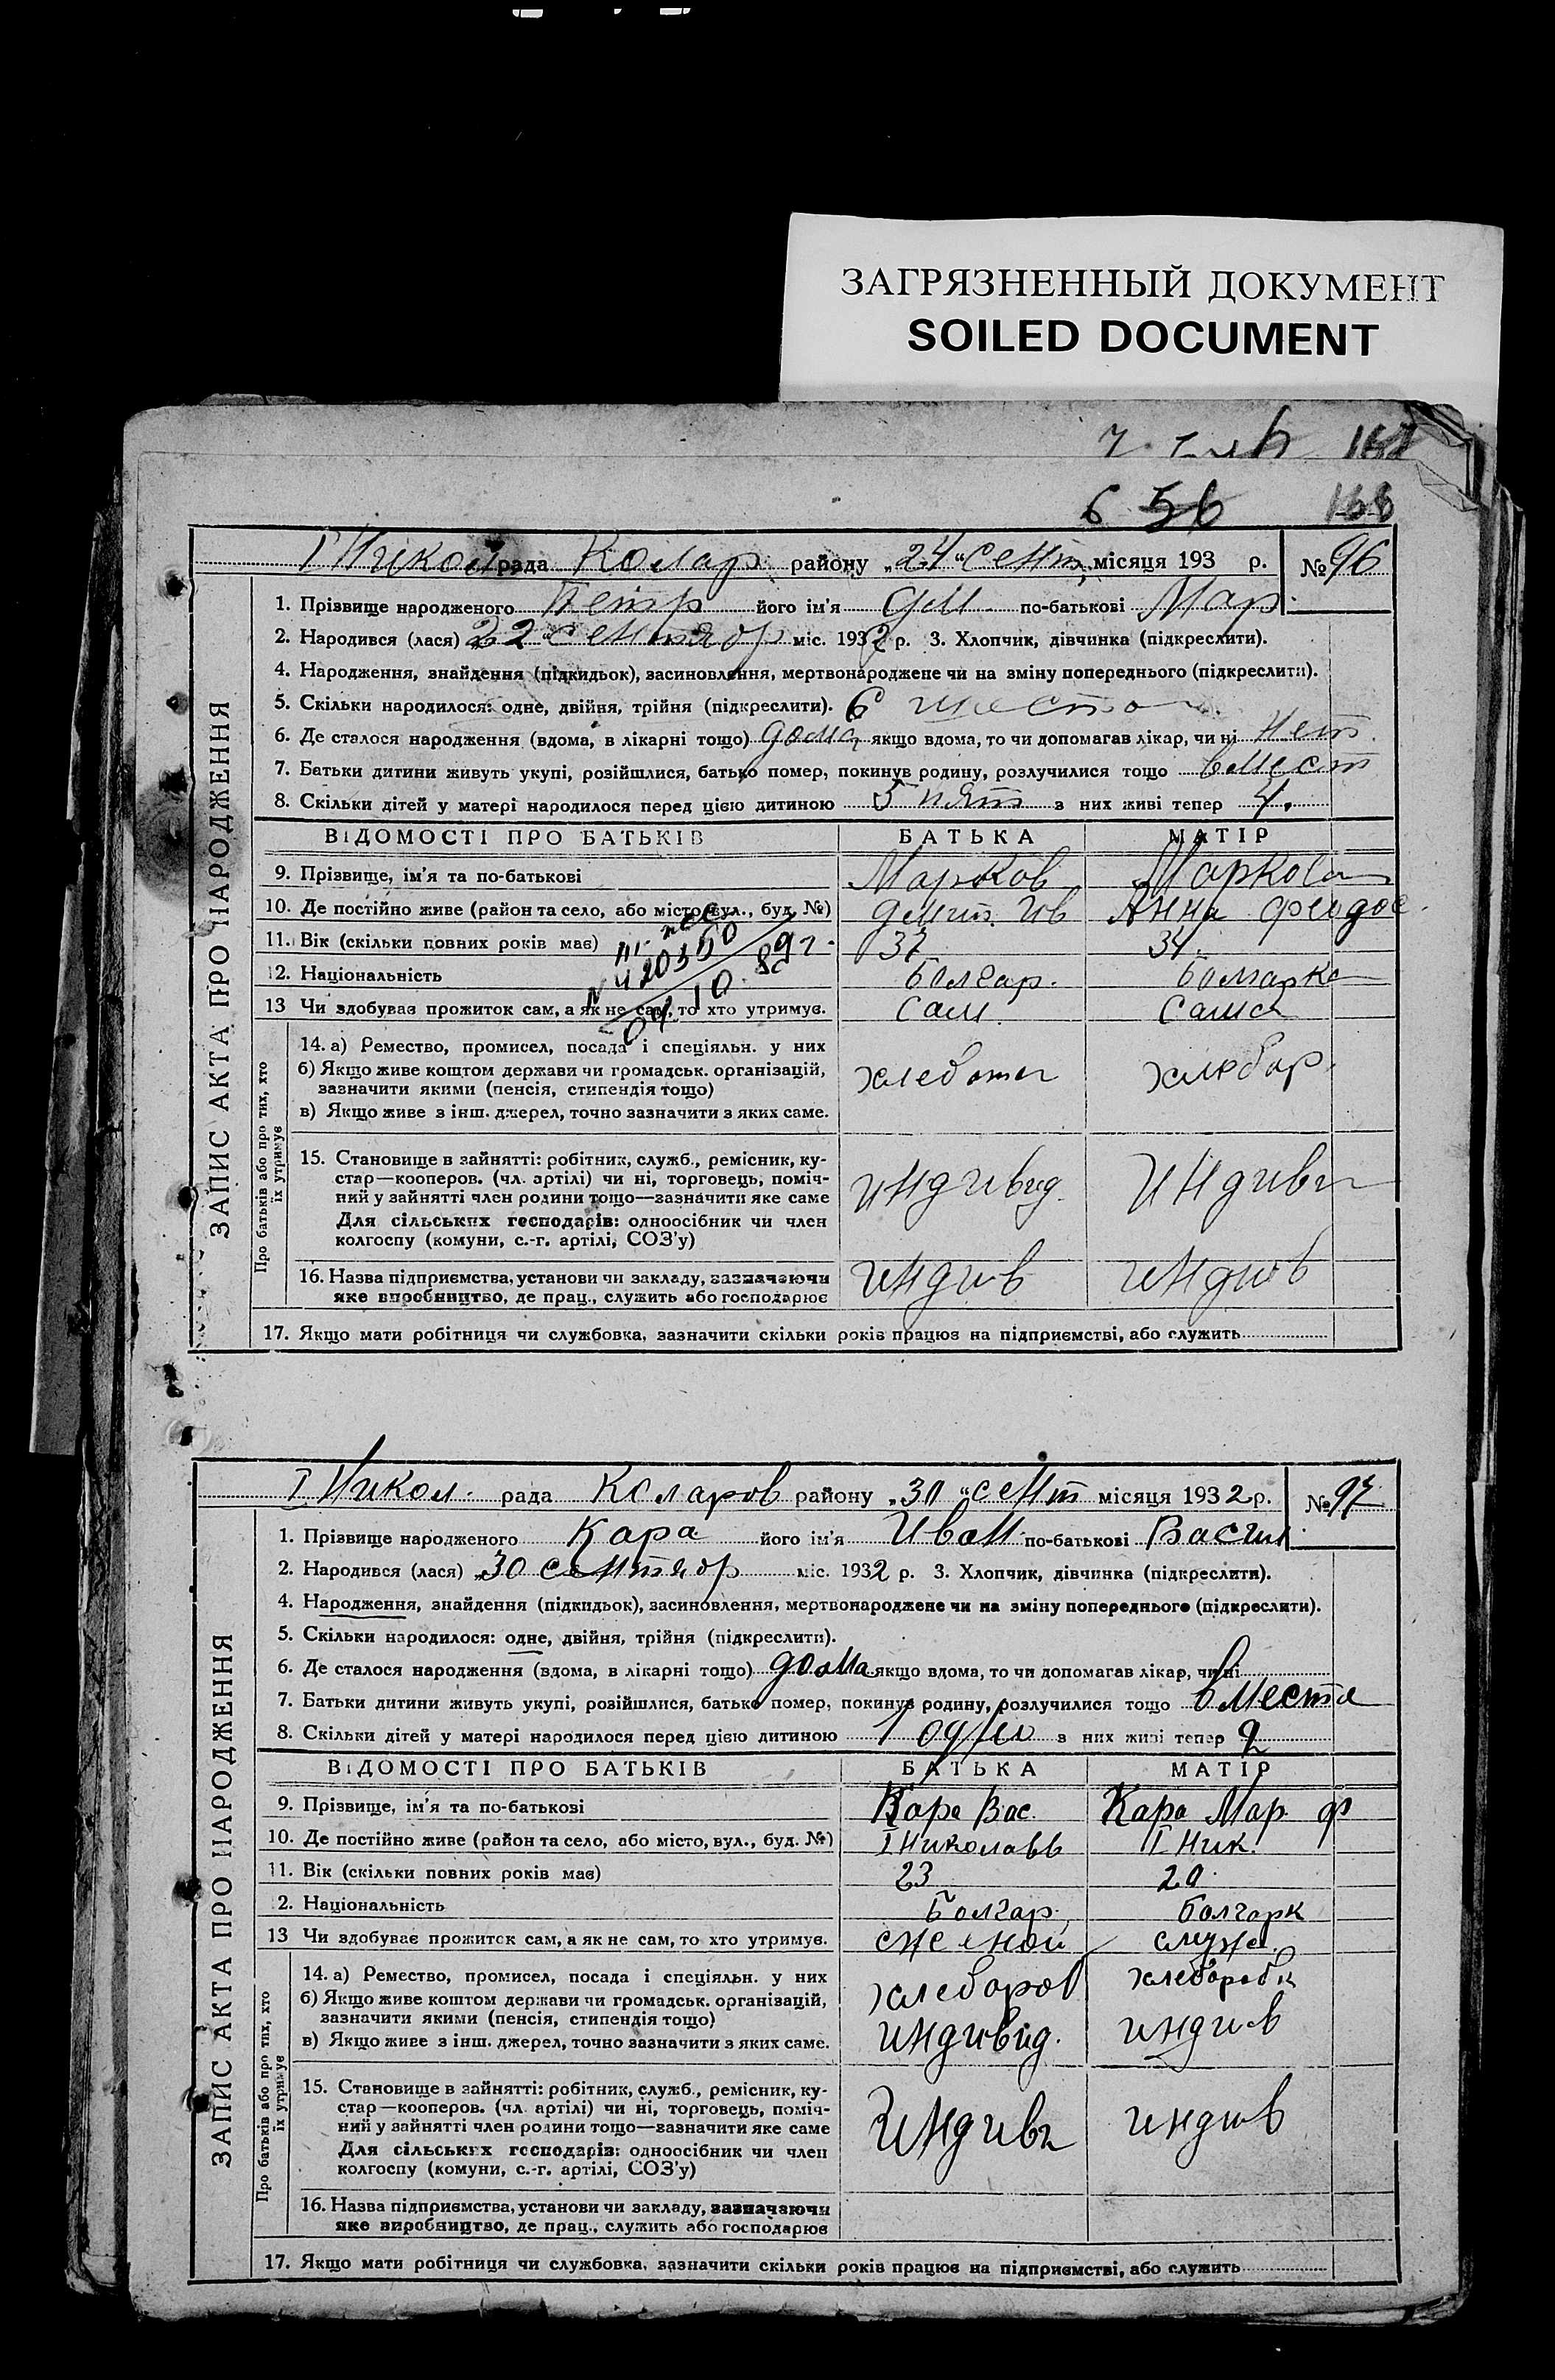 ЗАГРЯЗНЕННЫЙ ДОКУМЕНТ
SOILED DOCUMENT
6 56 168
I Никол. рада Колар району „24“ сент. місяця 193 р. № 96
1. Прізвище народженого Петр його ім'я Дм. по-батькові Мар.
2. Народився (лася) 22 сентябр міс. 1932 р. 3. Хлопчик, дівчинка (підкреслити).
4. Народження, знайдення (підкидьок), засиновлення, мертвонароджене чи на зміну попереднього (підкреслити).
5. Скільки народилося: одне, двійня, трійня (підкреслити). 6
6. Де сталося народження (вдома, в лікарні тощо) дома якщо вдома, то чи допомагав лікар, чи ні нет.
7. Батьки дитини живуть укупі, розійшлися, батько помер, покинув родину, розлучилися тощо вмест
8. Скільки дітей у матері народилося перед цією дитиною 5 пят з них живі тепер 4.
ВІДОМОСТІ ПРО БАТЬКІВ БАТЬКА МАТІР
9. Прізвище, ім'я та по-батькові Марков Маркова
10. Де постійно живе (район та село, або місто, вул., буд. №) Анна Федос.
11. Вік (скільки повних років має) 37 34.
12. Національність болгар. болгарка
13 Чи здобуває прожиток сам, а як не сам, то хто утримує. сам. сама
ЗАПИС АКТА ПРО НАРОДЖЕННЯ
Про батьків або про тих, хто їх утримує
14. а) Ремество, промисел, посада і спеціяльн. у них
б) Якщо живе коштом держави чи громадськ. організацій,
зазначити якими (пенсія, стипендія тощо) хлебопаш хлебор.
в) Якщо живе з інш. джерел, точно зазначити з яких саме.
15. Становище в зайнятті: робітник, служб., ремісник, ку-
стар—кооперов. (чл. артілі) чи ні, торговець, поміч-
ний у зайнятті член родини тощо—зазначити яке саме индивид. индиви
Для сільських господарів: одноосібник чи член
колгоспу (комуни, с.-г. артілі, СОЗ'у)
16. Назва підприємства, установи чи закладу, зазначаючи индив индив
яке виробництво, де прац., служить або господарює
17. Якщо мати робітниця чи службовка, зазначити скільки років працює на підприємстві, або служить
I Никол. рада Коларов району „30“ сент місяця 1932 р. № 97
1. Прізвище народженого Кара його ім'я Иван по-батькові Васил
2. Народився (лася) „30 сентябр міс. 1932 р. 3. Хлопчик, дівчинка (підкреслити).
4. Народження, знайдення (підкидьок), засиновлення, мертвонароджене чи на зміну попереднього (підкреслити).
5. Скільки народилося: одне, двійня, трійня (підкреслити).
6. Де сталося народження (вдома, в лікарні тощо) дома якщо вдома, то чи допомагав лікар, чи ні
7. Батьки дитини живуть укупі, розійшлися, батько помер, покинув родину, розлучилися тощо вместе
8. Скільки дітей у матері народилося перед цією дитиною 1 один з них живі тепер 2
ВІДОМОСТІ ПРО БАТЬКІВ БАТЬКА МАТІР
9. Прізвище, ім'я та по-батькові Кара Вас. Кара Мар. Ф
10. Де постійно живе (район та село, або місто, вул., буд. №) I Николавв I Ник.
11. Вік (скільки повних років має) 23 20.
12. Національність болгар. болгарк
13 Чи здобуває прожиток сам, а як не сам, то хто утримує. с женой с мужем
ЗАПИС АКТА ПРО НАРОДЖЕННЯ
Про батьків або про тих, хто їх утримує
14. а) Ремество, промисел, посада і спеціяльн. у них хлебороб хлебороб
б) Якщо живе коштом держави чи громадськ. організацій,
зазначити якими (пенсія, стипендія тощо)
в) Якщо живе з інш. джерел, точно зазначити з яких саме. индивид. индив
15. Становище в зайнятті: робітник, служб., ремісник, ку-
стар—кооперов. (чл. артілі) чи ні, торговець, поміч-
ний у зайнятті член родини тощо—зазначити яке саме индиви индив
Для сільських господарів: одноосібник чи член
колгоспу (комуни, с.-г. артілі, СОЗ'у)
16. Назва підприємства, установи чи закладу, зазначаючи
яке виробництво, де прац., служить або господарює
17. Якщо мати робітниця чи службовка, зазначити скільки років працює на підприємстві, або служить